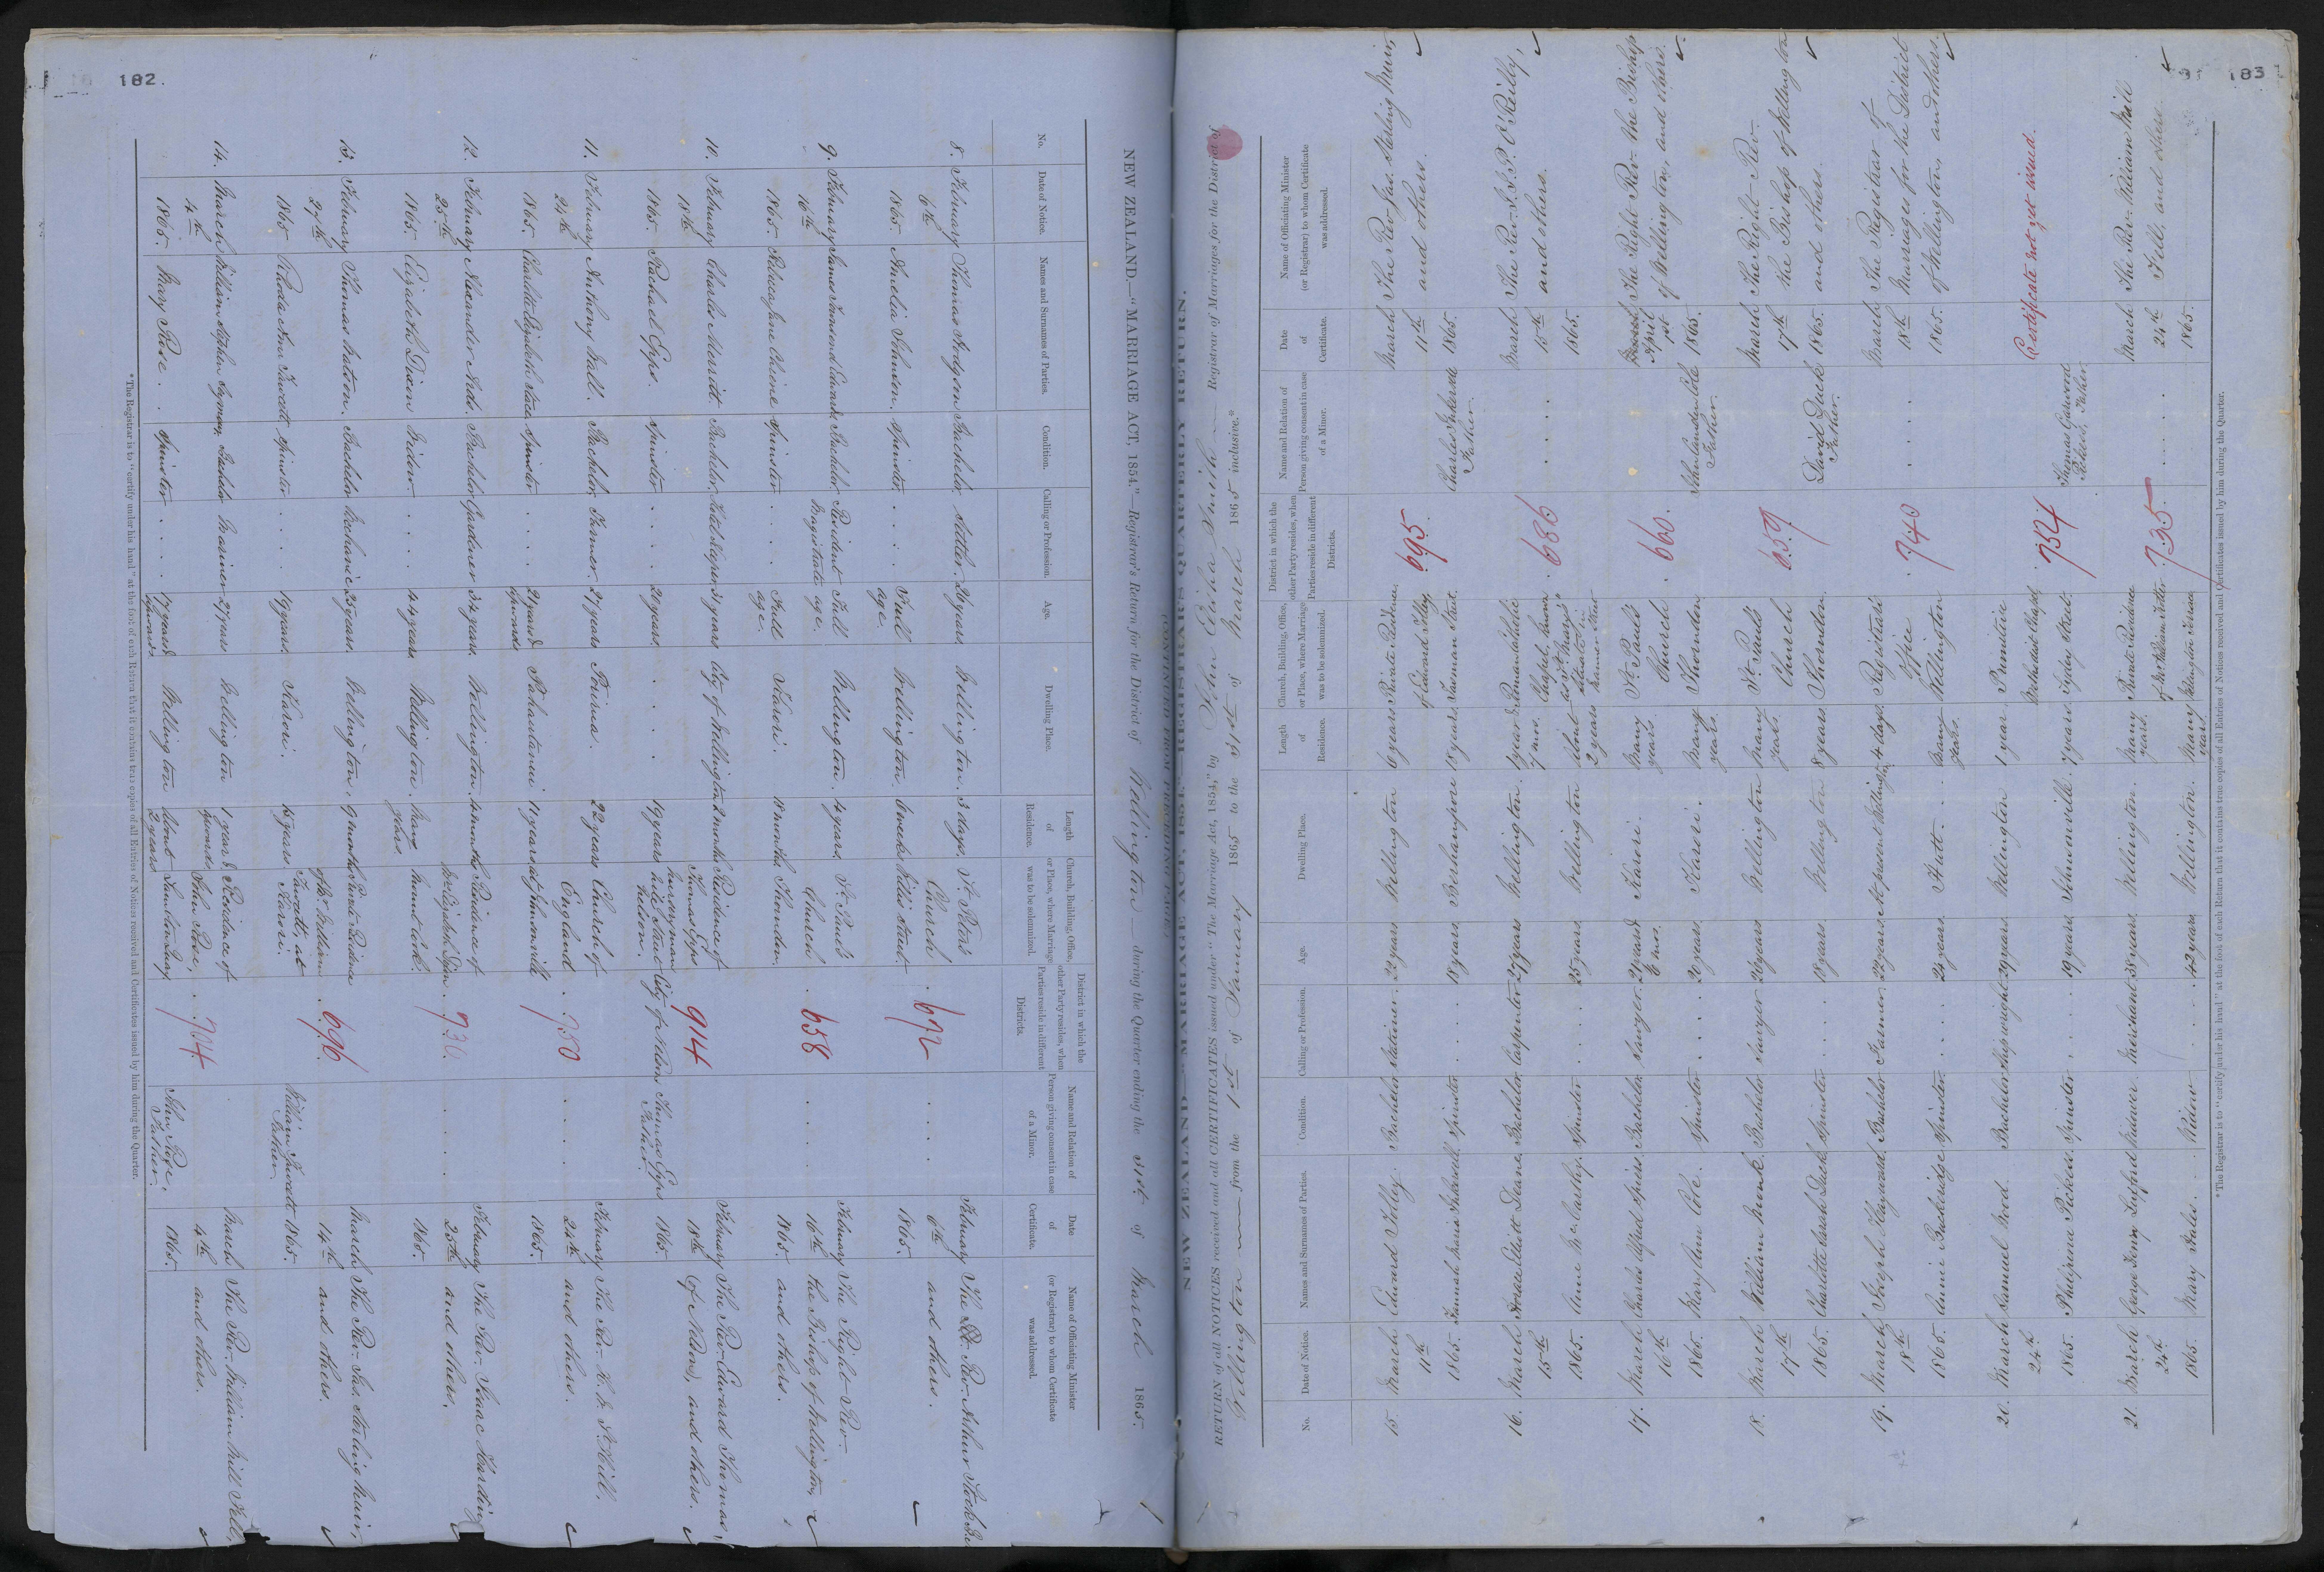 182.
NEW ZEALAND.—"MARRIAGE ACT, 1854."—Registrar's Return for the District of Wellington during the Quarter ending the 31st of March 1865.
No.
Date of Notice.
Names and Surnames of Parties.
Condition.
Calling or Profession.
Age.
Dwelling Place.
Length of Residence.
Church, Building, Office, or Place, where Marriage was to be solemnized.
District in which the other Party resides, when Parties reside in different Districts.
Name and Relation of Person giving consent in case of a Minor.
Date of Certificate.
Name of Officiating Minister (or Registrar) to whom Certificate was addressed.
8. February Thomas Hodgson Bachelor Settler. 26 years Wellington. 3 days. St. Peter's February The Rev. Arthur Stock
6th Church . 672 . . . . 6th and others.
1865. Amelia Johnson. Spinster. . . . Full age. Wellington 6 weeks Willis Street. 1865.
9. February James Bachelor Resident Magistrate Full age. Wellington. 4 years St. Paul's February The Right Rev.
16th Church . 658 . . . . 16th the Bishop of Wellington
1865. Spinster . . . Full age. Karori. 18 months Thorndon. 1865. and others.
10. February Charles Merritt Bachelor 31 years City of Wellington 2 months Residence of February The Rev. Edward Thomas,
18th Thomas Epps 914 18th of Nelson, and others.
nurseryman
1865. Rachael Epps. Spinster . . . 20 years. . . . . 19 years Nelson. City of Nelson Thomas Epps Father 1865.
11. February Anthony Wall. Bachelor Farmer. 27 years Porirua. 22 years Church of February The Rev. H. W. St. Hill.
24th England . 750 . . . . 24th and others.
1865. Charlotte Elizabeth Stace Spinster . . . 21 years & upwards Pahautanui 11 years at Johnsonville 1865.
12. February Alexander Bachelor Gardener 34 years. Wellington. 4 months Residence of February The Rev. Isaac Harding
25th Mrs Elizabeth Dixon . 730. . . . . 25th and others.
1865. Elizabeth Dixon Widow. . . . . 44 years. Wellington. many years. Mount Cook. 1865.
13. February Thomas Bachelor Mechanic 25 years. Wellington. 9 months Private Residence March The Rev. Jas. Sterling Muir,
27th of Mr. William Fawcett, at Karori. . 696 14th and others.
1865 Rhoda Ann Fawcett Spinster . . . 19 years. Karori. 15 years William Fawcett Father 1865.
14. March William Stephen Bachelor Mariner 27 years Wellington 1 year & upwards Residence of March The Rev. William Mill Fell,
4th John Rose, . 704 4th and others.
1865. Mary Rose. . Spinster . . . . 17 years & upwards. Wellington about 2 years Lambton Quay John Rose, Father. 1865.
* The Registrar is to "certify under his hand" at the foot of each Return that it contains true copies of all Entries of Notices received and Certificates issued by him during the Quarter.
183
NEW ZEALAND—"MARRIAGE ACT, 1854."—REGISTRAR'S QUARTERLY RETURN.
(CONTINUED FROM PRECEDING PAGE.)
RETURN of all NOTICES received and all CERTIFICATES issued under "The Marriage Act, 1854," by John Elisha Smith Registrar of Marriages for the District of
Wellington from the 1st of January 1865 to the 31st of March 1865 inclusive.*
No.
Date of Notice.
Names and Surnames of Parties.
Condition.
Calling or Profession.
Age.
Dwelling Place.
Length of Residence.
Church, Building, Office, or Place, where Marriage was to be solemnized.
District in which the other Party resides, when Parties reside in different Districts.
Name and Relation of Person giving consent in case of a Minor.
Date of Certificate.
Name of Officiating Minister (or Registrar) to whom Certificate was addressed.
15. March Edward Tolley. Bachelor Stationer. 22 years Wellington 6 years Private Residence March The Rev. Jas. Sterling Muir,
11th of Edward Tolley 695. 11th and others.
1865. Hannah Maria Spinster . . . . 18 years. Berhampore 15 years. Taranaki Street. Charles Father. 1865.
16. March Horace Elliott Deane. Bachelor Carpenter 27 years Wellington. 1 year & 7 mos. Roman Catholic March The Rev. J. J. P. O'Reilly,
15th Chapel, known as "St. Mary's" . 686 . . . . 15th and others.
1865. Anne McCarthy. Spinster . . . . 25 years Wellington about 2 years situate in Manners Street 1865.
17. March Charles Alfred Spiers Bachelor Sawyer. 21 years & 6 mos. Karori. Many years. St. Paul's March April The Right Rev. the Bishop
16th Church . 660. 1st of Wellington, and others.
1865. Mary Ann Cole. Spinster . . . . 20 years. Karori. Many years. Thorndon John Cole Father. 1865.
18. March William Monk. Bachelor Sawyer 26 years Wellington Many years. St. Paul's March The Right Rev.
17th Church 659 17th the Bishop of Wellington
1865. Charlotte Sarah Duck Spinster . . . . 18 years. Wellington 8 years Thorndon. David Duck Father. 1865. and others.
19. March Joseph Hayward. Bachelor Farmer. 22 years. At present Wellington 4 days. Registrar's March The Registrar of
18th Office . 740 . . . . 18th Marriages for the District
1865. Annie Buckeridge Spinster. . . . . 24 years. Hutt. . . Many years. Wellington 1865. of Wellington, and others.
20. March Samuel Bachelor Shipwright. 29 years. Wellington 1 year. Primitive
24th Methodist Chapel . 734 Certificate not yet issued.
1865. Philipina Spinster. . . . . 19 years. Johnsonville. 7 years. Sydney Street. Thomas Father.
21. March George Bachelor Merchant 38 years. Wellington. Many years. Private Residence March The Rev. William Mill
24th of Mr. William . 735 . . . . 24th Fell, and others.
1865. Mary . . Widow . . . . 42 years Wellington. Many years. Wellington Terrace 1865.
* The Registrar is to "certify under his hand" at the foot of each Return that it contains true copies of all Entries of Notices received and Certificates issued by him during the Quarter.